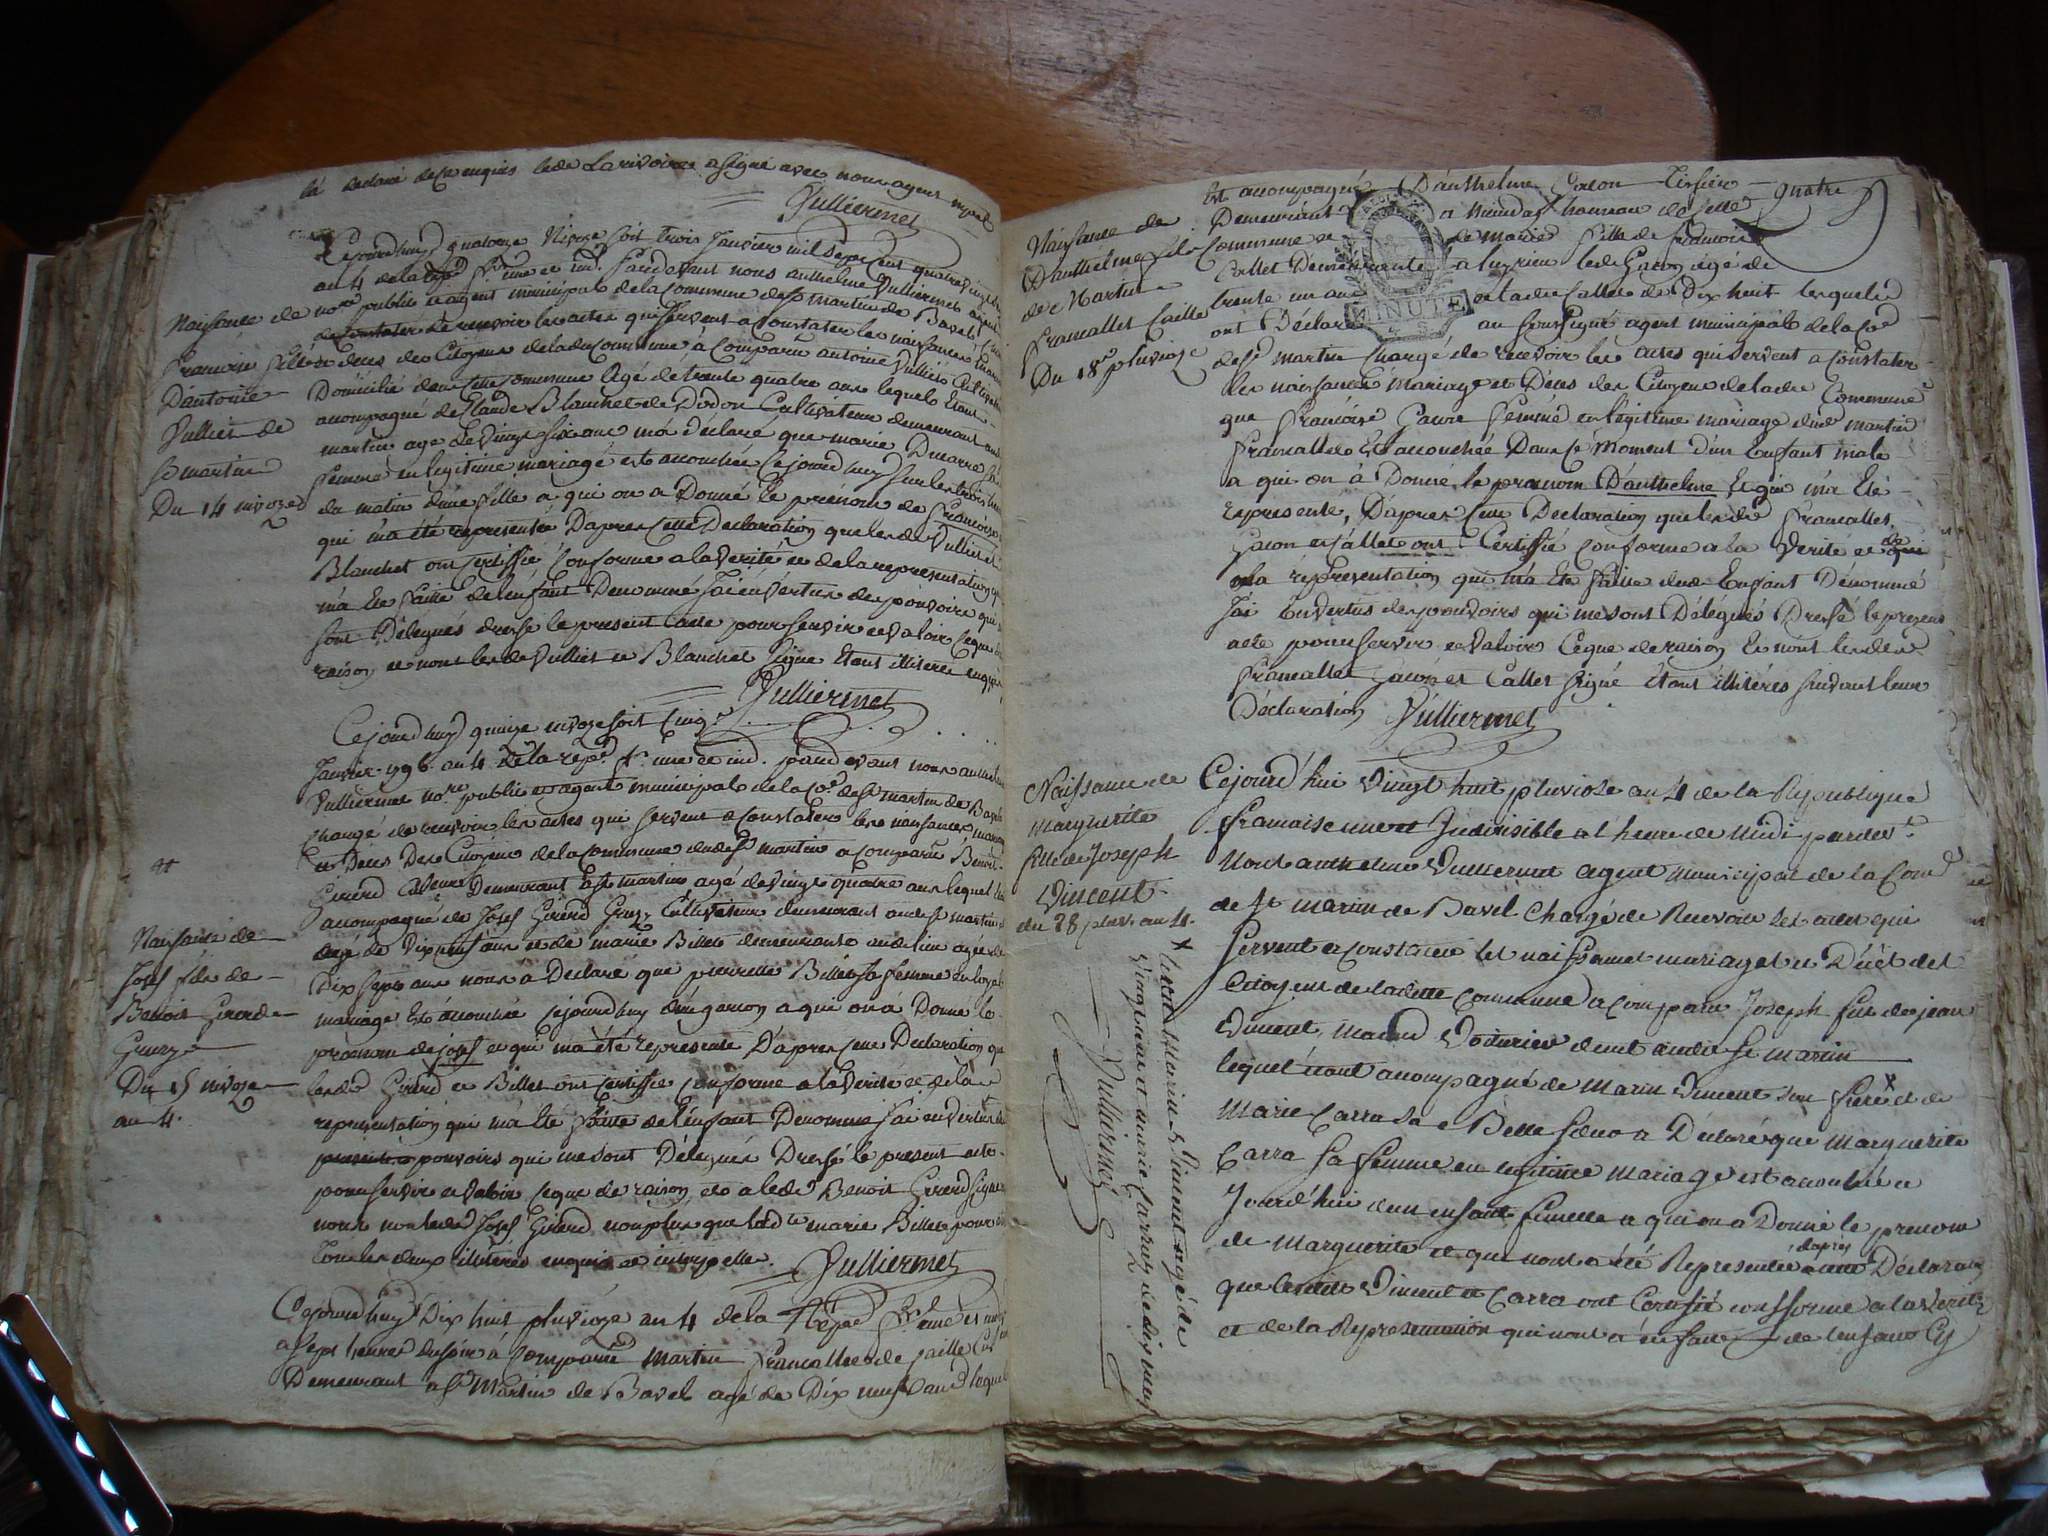 lá declaré de ce enquis ledt Larivoire a signé avec nous agent mpal
Vulliermet
Cejourdhuy quatorze Nivoze soit trois Janvier mil sept cent quatrevingt
au 4 de la rep fr. une et ind. pardevant nous anthelme Vulliermet
nore public et agent municipal de la commune de St martin de Bavel
de constater de recevoir les actes qui servent a constater les naissances
et déces des Citoyens de ladte Commune à comparu antoine Vulliet Cultivateur
Domicilié dans cette commune agé de trente quatre ans lequel Etant
accompagné de Claude Blanchet de Dodon Cultivateur demeurant
martin agé de vingt six ans m'a declaré que marie Ducarre
femme en legitime mariage est accouchée cejourdhuy sur les trois
du matin d'une fille a qui on a Donné le prénom de francoise
qui m'a été représentée D'apres cette Declaration que lesdts Vulliet et
Blanchet ont certiffié Conforme a la Verité et de la representation
m'a été faitte de l'enfant Denommé J'ai en vertu des pouvoirs qui
sont Délegués dressé le present acte pour servir et valoir ceque
raison et nont lesdt Vulliet et Blanchet signé Etant illiterés enquis
Vulliermet
Naissance de
francoise fille
D'antoine
Vulliet de
St martin
Du 14 nivoze
Cejourdhuy quinze nivoze soit cinq
Janvier 1796 an 4 de la rep. fr. une et ind. pardevant nous
Vulliermet nore public et agent municipal de la Co. de St martin de Bavel
chargé de recevoir les actes qui servent a constater les naissances
et Déces Des Citoyens de la Commune dudt St martin a comparu Benoit
Girerd Demeurant a St martin agé de vingt quatre ans lequel
accompagné de Josef Girerd Cultivateur demeurant audt St martin
agé de Dix neuf ans et de marie Billet demeurante audt lieu agée de
Dix sept ans nous a Declaré que pierrette Billet sa femme en
mariage Est accouchée cejourdhuy d'un garcon a qui on a Donné le
prenom de josef et qui m'a été représenté D'apres cette Declaration que
lesdt Girerd et Billet ont certiffié conforme a la Verité et de la
representation qui m'a été faitte de l'enfant Denommé J'ai en vertu des
pouvoirs qui me sont Délegués Dressé le present acte
pour servir et valoir ceque de raison et a ledt Benoit Girerd signé
nous non ledt Josef Girerd non plus que ladte marie Billet pour
tous les deux illiterés enquis et interpellé. Vulliermet
Naissance de
Josef fils de
Benoit Girerd
Du 15 nivoze
an 4.
Cejourdhuy Dix huit pluvioze an 4 de la Rép fr. une et ind
a sept heures du soir à comparu Martin francallet
Demeurant a St Martin de Bavel agé de Dix neuf ans lequel
Est accompagné D'anthelme Gacon Tissier
quatre
Demeurant a
Commune de
de marie fille de francois
Callet Demeurante a luyrieu ledt Gacon agé de
trente un ans et ladte Callet de Dix huit lesquels
ont Déclaré au soussigné agent municipal de la Co.
MINUTE
de St martin chargé de recevoir les actes qui servent a Constater
les naissances mariage et Déces des Citoyens de ladte Commune
que francoise femme en légitime mariage dudt martin
francallet Est accouchée Dans ce Moment d'un Enfant male
a qui on à Donné le prenom D'anthelme Et qui m'a Eté
représenté, D'apres cette Declaration que lesdt francallet
Gacon et Callet ont Certiffié conforme a la Verité et de
la représentation qui m'a Eté faitte dudt Enfant Dénommé
J'ai En vertus des pouvoirs qui me sont Délegués Dressé le present
acte pour servir et valoir Ceque de raison Et nont lesdt
francallet Gacon et Callet signé étant illitérés suivant leur
Déclaration Vulliermet
Naissance de
D'anthelme fils
de Martin
francallet
Du 18 pluvioze
Cejourd'hui vingt huit pluviose an 4 de la République
francaise une et Indivisible a l'heure de Midi pardevt
Nous anthelme Vulliermet agent municipal de la Com
de St martin de Bavel chargé de Recevoir les actes qui
servent a constater les naissances mariages et Décès des
Citoyens de ladette commune a comparu Joseph fils de jean
Vincent, Voiturier demt audit St martin
lequel étant accompagné de Marin Vincent son frere x et de
Marie Carra sa Belle soeur a Déclaré que Marguerite
Carra sa femme en legitime mariage est accouchée
Jourd'hui d'un enfant femelle a qui on a Donné le prenom
de Marguerite et qui nous a été Representée d'après cette Déclaraon
que lesdits Vincent et Carra ont Certifié conforme a la Verité
et de la Representation qui nous a été faitte de l'enfant Cy
Naissance de
Marguerite
fille de Joseph
Vincent
du 28 pluv. an 4.
x ledit Marin Vincent agé de
vingt un et marie Carra de dix neuf
Vulliermet